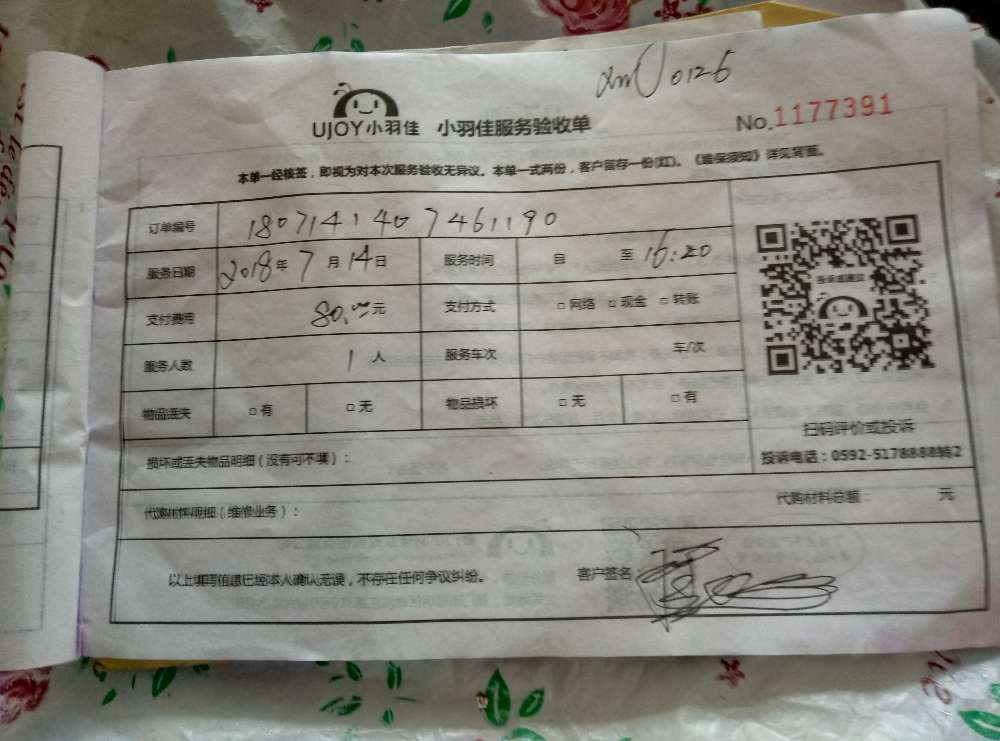 0126
UJOY小羽佳 小羽佳服务验收单
No.1177391
本单一经核签，即视为对本次服务验收无异议。本单一式两份，客户留存一份(红)。《维保须知》详见背面。
订单编号 180714140 7461190
服务日期 2018年 7月 14日 服务时间 自 至 16:20
支付费用 80.00元 支付方式 □ 网络 □ 现金 □ 转账
服务人数 1 人 服务车次 车/次
物品丢失 □ 有 □ 无 物品损坏 □ 无 □ 有
扫码评价或投诉
投诉电话：0592-5178888转2
损坏或丢失物品明细（没有可不填）：
代购材料明细（维修业务）： 代购材料总额： 元
以上填写信息已经本人确认无误，不存在任何争议纠纷。 客户签名：